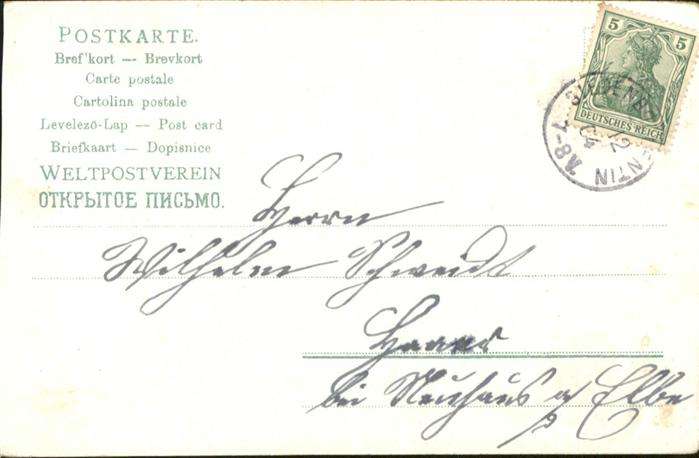 POSTKARTE.
Bref'kort — Brevkort
Carte postale
Cartolina postale
Levelezö-Lap — Post card
Briefkaart — Dopisnice
WELTPOSTVEREIN
ОТКРЫТОЕ ПИСЬМО.
5 5
DEUTSCHES REICH
7-8V.
Herrn
Wilhelm Schmidt
Haars
bei Neuhaus a/ Elbe